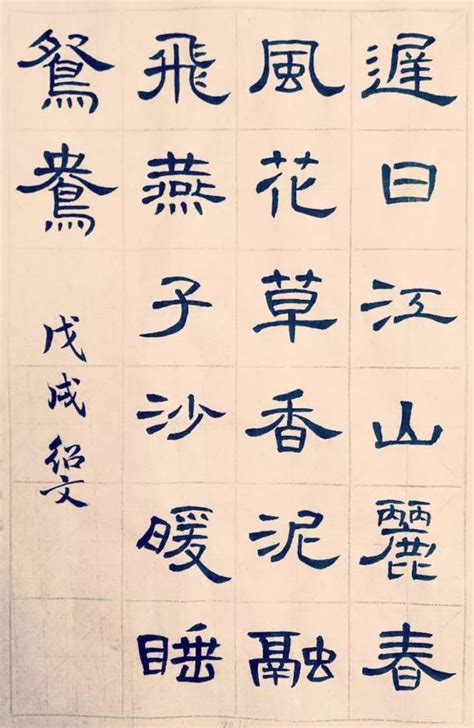 遲日江山麗春
風花草香泥融
飛燕子沙暖睡
鴛鴦
戊戌 紹文